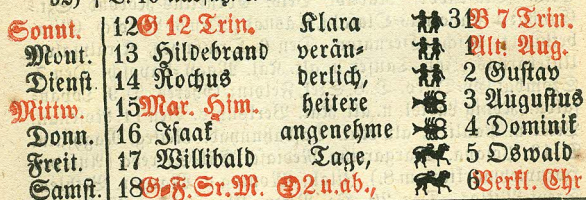 Sonnt. 12 G 12 Trin. Klara 31 B 7 Trin.
Mont. 13 Hildebrand verän- 1 Alt Aug.
Dienst 14 Rochus derlich, 2 Gustav
Mittw. 15 Mar. Him. heitere 3 Augustus
Donn. 16 Isaak angenehme 4 Dominik
Freit. 17 Willibald Tage, 5 Oswald
Samst. 18 G-F. Sr. M. 2 u. ab., 6 Verkl. Chr